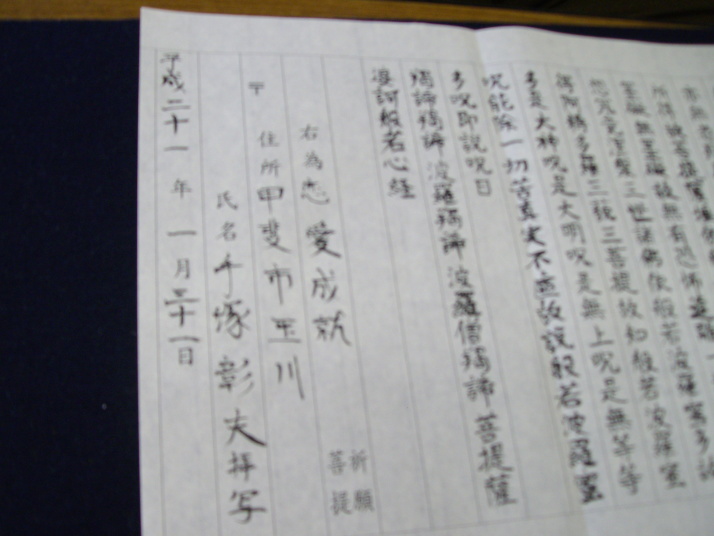 罣礙無罣礙故無有恐怖遠離一
想究竟涅槃三世諸佛依般若波羅蜜多故
得阿耨多羅三藐三菩提故知般若波羅蜜
多是大神呪是大明呪是無上呪是無等等
呪能除一切苦真実不虚故説般若波羅蜜
多呪即説呪曰
羯諦羯諦 波羅羯諦 波羅僧羯諦 菩提薩
婆訶般若心経
祈願
菩提
右為恋愛成就
〒 住所甲斐市玉川
氏名千塚彰夫拝写
平成二十一年一月三十一日